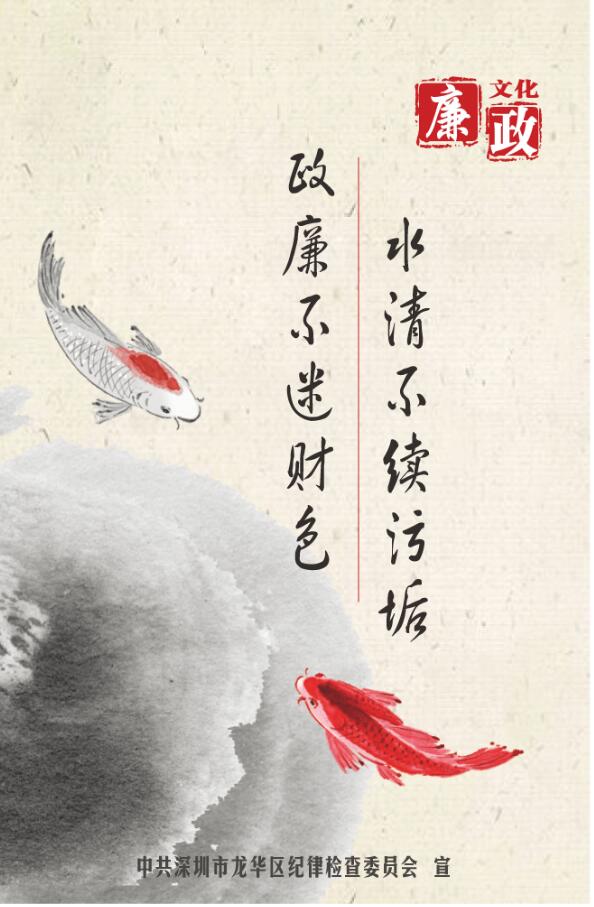 廉政文化
水清不续污垢
政廉不迷财色
中共深圳市龙华区纪律检查委员会 宣